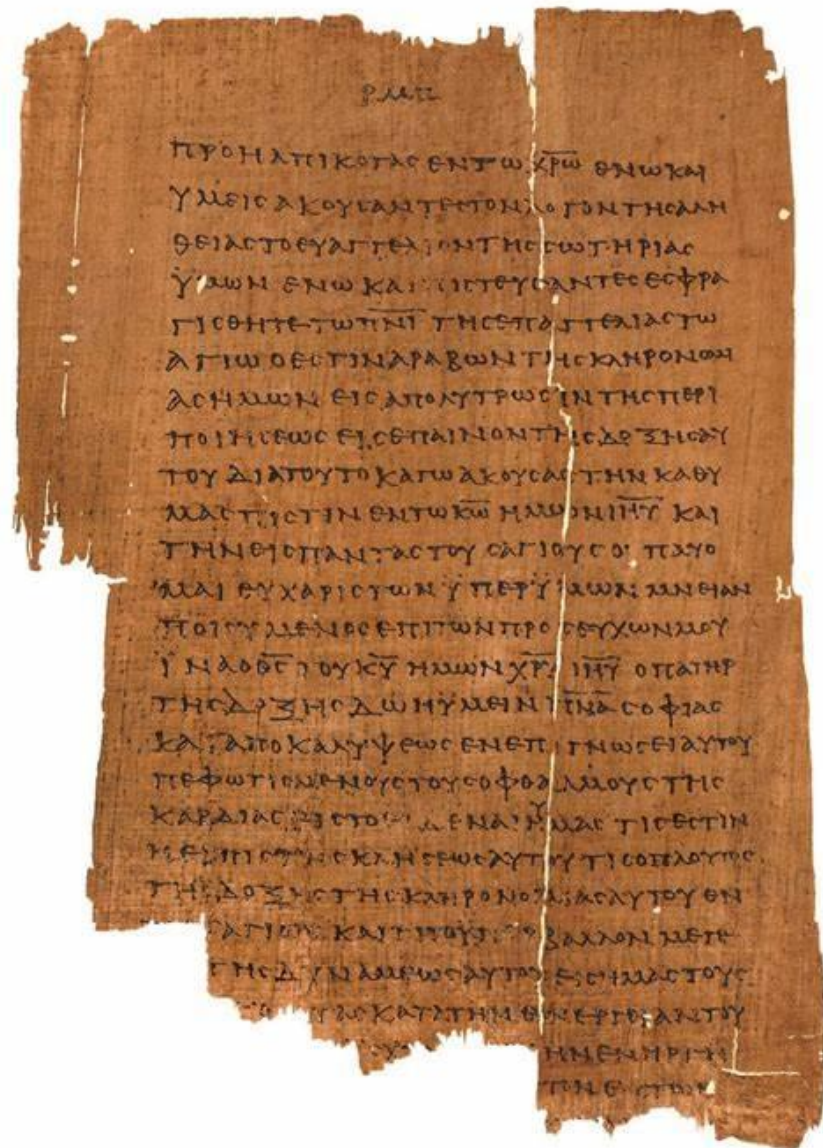 ΠΡΟΗΛΠΙΚΟΤΑΣ ΕΝ ΤΩ ΧΡΩ ΕΝ Ω ΚΑΙ
ΥΜΕΙΣ ΑΚΟΥΣΑΝΤΕΣ ΤΟΝ ΛΟΓΟΝ ΤΗΣ ΑΛΗ
ΘΕΙΑΣ ΤΟ ΕΥΑΓΓΕΛΙΟΝ ΤΗΣ ΣΩΤΗΡΙΑΣ
ΥΜΩΝ ΕΝ Ω ΚΑΙ ΠΙΣΤΕΥΣΑΝΤΕΣ ΕΣΦΡΑ
ΓΙΣΘΗΤΕ ΤΩ ΠΝΙ ΤΗΣ ΕΠΑΓΓΕΛΙΑΣ ΤΩ
ΑΓΙΩ Ο ΕΣΤΙΝ ΑΡΑΒΩΝ ΤΗΣ ΚΛΗΡΟΝΟΜΙ
ΑΣ ΗΜΩΝ ΕΙΣ ΑΠΟΛΥΤΡΩΣΙΝ ΤΗΣ ΠΕΡΙ
ΠΟΙΗΣΕΩΣ ΕΙΣ ΕΠΑΙΝΟΝ ΤΗΣ ΔΟΞΗΣ ΑΥ
ΤΟΥ ΔΙΑ ΤΟΥΤΟ ΚΑΓΩ ΑΚΟΥΣΑΣ ΤΗΝ ΚΑΘ Υ
ΜΑΣ ΠΙΣΤΙΝ ΕΝ ΤΩ ΚΩ ΗΜΩΝ ΙΗΥ ΚΑΙ
ΤΗΝ ΕΙΣ ΠΑΝΤΑΣ ΤΟΥΣ ΑΓΙΟΥΣ ΟΥ ΠΑΥΟ
ΜΑΙ ΕΥΧΑΡΙΣΤΩΝ ΥΠΕΡ ΥΜΩΝ ΜΝΕΙΑΝ
ΠΟΙΟΥΜΕΝΟΣ ΕΠΙ ΤΩΝ ΠΡΟΣΕΥΧΩΝ ΜΟΥ
ΙΝΑ Ο ΘΣ ΤΟΥ ΚΥ ΗΜΩΝ ΧΡΥ ΙΗΥ Ο ΠΑΤΗΡ
ΤΗΣ ΔΟΞΗΣ ΔΩΗ ΥΜΕΙΝ ΠΝΑ ΣΟΦΙΑΣ
ΚΑΙ ΑΠΟΚΑΛΥΨΕΩΣ ΕΝ ΕΠΙΓΝΩΣΕΙ ΑΥΤΟΥ
ΠΕΦΩΤΙΣΜΕΝΟΥΣ ΤΟΥΣ ΟΦΘΑΛΜΟΥΣ ΤΗΣ
ΚΑΡΔΙΑΣ ΕΙΣ ΤΟ ΕΙΔΕΝΑΙ ΥΜΑΣ ΤΙΣ ΕΣΤΙΝ
Η ΕΛΠΙΣ ΤΗΣ ΚΛΗΣΕΩΣ ΑΥΤΟΥ ΤΙΣ Ο ΠΛΟΥΤΟΣ
ΤΗΣ ΔΟΞΗΣ ΤΗΣ ΚΛΗΡΟΝΟΜΙΑΣ ΑΥΤΟΥ ΕΝ
ΑΓΙΟΙΣ ΚΑΙ ΤΙ ΤΟ ΥΠΕΡΒΑΛΛΟΝ ΜΕΓΕ
ΤΗΣ ΔΥΝΑΜΕΩΣ ΑΥΤΟΥ ΕΙΣ ΗΜΑΣ ΤΟΥΣ
ΚΑΤΑ ΤΗΝ ΕΝΕΡΓΕΙΑΝ ΤΟΥ
ΗΝ ΕΝΗΡΓΗ